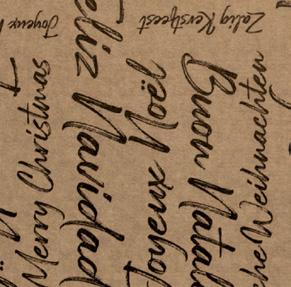 Joyeux
Zalig Kerstfeest
Merry Christmas
Feliz Navidad
Joyeux Noël
Buon Natal
che Weihnachten